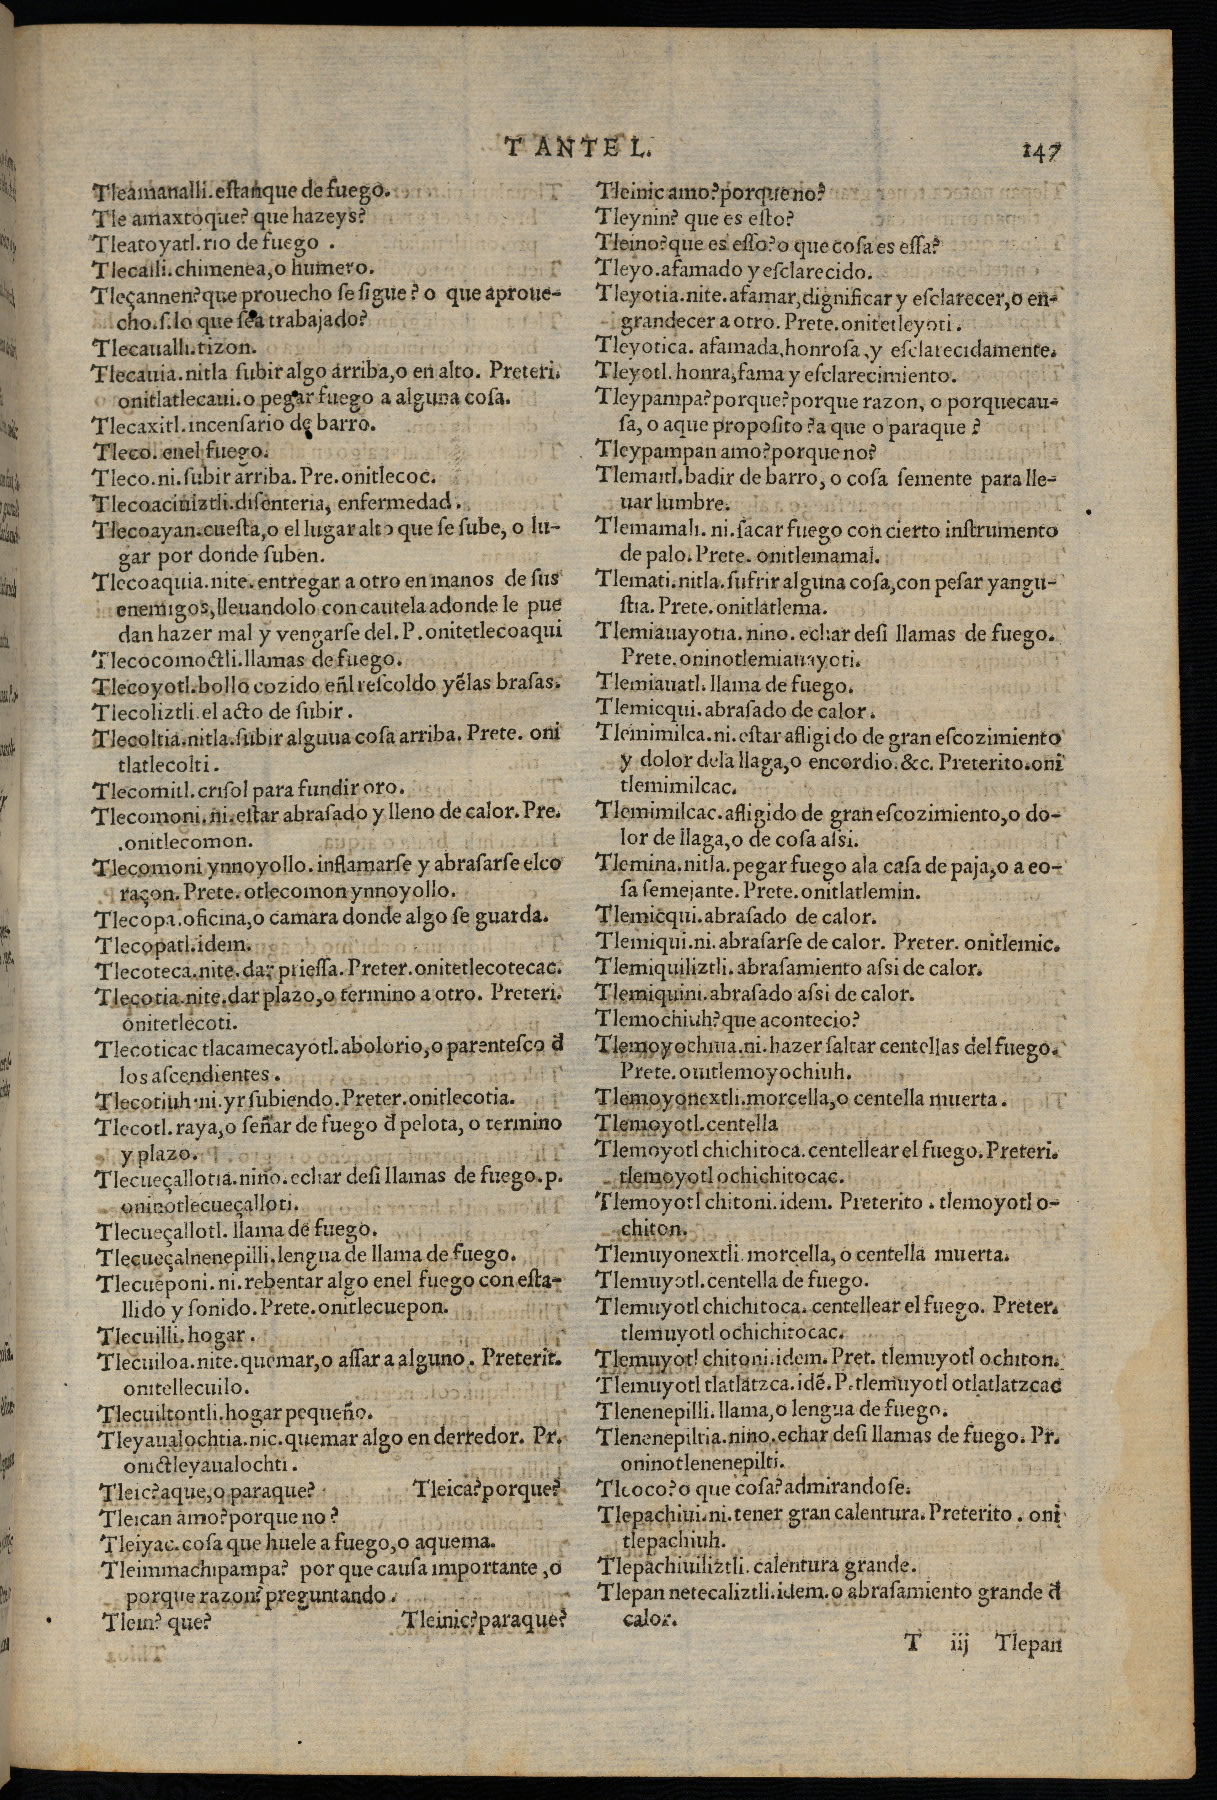 T ANTE L.
147
Tleamanalli. eſtanque de fuego.
Tle amaxtoque? que hazeys?
Tleatoyatl. rio de fuego .
Tlecalli. chimenea, o humero.
Tleçannen? que prouecho ſe ſigue? o que aproue-
cho. ſ. lo que ſea trabajado?
Tlecaualli. tizon.
Tlecauia. nitla ſubir algo arriba, o en alto. Preteri.
onitlatlecaui. o pegar fuego a alguna coſa.
Tlecaxitl. incenſario de barro.
Tleco. enel fuego.
Tleco. ni. ſubir arriba. Pre. onitlecoc.
Tlecoaciniztli. diſenteria, enfermedad.
Tlecoayan. cueſta, o el lugar alto que ſe ſube, o lu-
gar por donde ſuben.
Tlecoaquia. nite. entregar a otro en manos de ſus
enemigos, lleuandolo con cautela adonde le pue
dan hazer mal y vengarſe del. P. onitetlecoaqui
Tlecocomoctli. llamas de fuego.
Tlecoyotl. bollo cozido eñl reſcoldo yẽlas braſas.
Tlecoliztli. el acto de ſubir.
Tlecoltia. nitla. ſubir alguua coſa arriba. Prete. oni
tlatlecolti.
Tlecomitl. criſol para fundir oro.
Tlecomoni. ni. eſtar abraſado y lleno de calor. Pre.
.onitlecomon.
Tlecomoni ynnoyollo. inflamarſe y abraſarſe elco
raçon. Prete. otlecomon ynnoyollo.
Tlecopa. oficina, o camara donde algo ſe guarda.
Tlecopatl. idem.
Tlecoteca. nite. dar prieſſa. Preter. onitetlecotecac.
Tlecotia. nite. dar plazo, o termino a otro. Preteri.
onitetlecoti.
Tlecoticac tlacamecayotl. abolorio, o parenteſco d̃
los aſcendientes.
Tlecotiuh. ni. yr ſubiendo. Preter. onitlecotia.
Tlecotl. raya, o ſeñar de fuego d̃ pelota, o termino
y plazo.
Tlecueçallotia. nino. echar deſi llamas de fuego. p.
oninotlecueçalloti.
Tlecueçallotl. llama de fuego.
Tlecueçalnenepilli. lengua de llama de fuego.
Tlecueponi. ni. rebentar algo enel fuego con eſta-
llido y ſonido. Prete. onitlecuepon.
Tlecuilli. hogar.
Tlecuiloa. nite. quemar, o aſſar a alguno. Preterit.
onitellecuilo.
Tlecuiltontli. hogar pequeño.
Tleyaualochtia. nic. quemar algo en derredor. Pr.
onictleyaualochti.
Tleic? aque, o paraque? Tleica? porque?
Tleican amo? porque no?
Tleiyac. coſa que huele a fuego, o aquema.
Tleimmachpampa? por que cauſa importante, o
porque razon? preguntando.
Tlein? que? Tleinic? paraque?
Tleinic amo? porque no?
Tleynin? que es eſto?
Tleino? que es eſſo? o que coſa es eſſa?
Tleyo. afamado y eſclarecido.
Tleyotia. nite. afamar, dignificar y eſclarecer, o en-
grandecer a otro. Prete. onitetleyoti.
Tleyotica. afamada, honroſa, y eſclarecidamente.
Tleyotl. honra, fama y eſclarecimiento.
Tleypampa? porque? porque razon, o porquecau-
ſa, o aque propoſito? a que o paraque?
Tleypampan amo? porque no?
Tlemaitl. badir de barro, o coſa ſemente para lle-
uar lumbre.
Tlemamali. ni. ſacar fuego con cierto inſtrumento
de palo. Prete. onitlemamal.
Tlemati. nitla. ſufrir alguna coſa, con peſar yangu-
ſtia. Prete. onitlatlema.
Tlemiauayotia. nino. echar deſi llamas de fuego.
Prete. oninotlemiauayoti.
Tlemiauatl. llama de fuego.
Tlemicqui. abraſado de calor.
Tlemimilca. ni. eſtar afligido de gran eſcozimiento
y dolor dela llaga, o encordio. &c. Preterito. oni
tlemimilcac.
Tlemimilcac. afligido de gran eſcozimiento, o do-
lor de llaga, o de coſa aſsi.
Tlemina. nitla. pegar fuego ala caſa de paja, o a eo-
ſa ſemejante. Prete. onitlatlemin.
Tlemicqui. abraſado de calor.
Tlemiqui. ni. abraſarſe de calor. Preter. onitlemic.
Tlemiquiliztli. abraſamiento aſsi de calor.
Tlemiquini. abraſado aſsi de calor.
Tlemochiuh? que acontecio?
Tlemoyochiua. ni. hazer ſaltar centellas del fuego.
Prete. onitlemoyochiuh.
Tlemoyonextli. morcella, o centella muerta.
Tlemoyotl. centella
Tlemoyotl chichitoca. centellear el fuego. Preteri.
tlemoyotl ochichitocac.
Tlemoyotl chitoni. idem. Preterito. tlemoyotl o-
chiton.
Tlemuyonextli. morcella, o centella muerta.
Tlemuyotl. centella de fuego.
Tlemuyotl chichitoca. centellear el fuego. Preter.
tlemuyotl ochichitocac.
Tlemuyotl chitoni. idem. Pret. tlemuyotl ochiton.
Tlemuyotl tlatlatzca. idẽ. P. tlemuyotl otlatlatzcac
Tlenenepilli. llama, o lengua de fuego.
Tlenenepiltia. nino. echar deſi llamas de fuego. Pr.
oninotlenenepilti.
Tleoco? o que coſa? admirandoſe.
Tlepachiui. ni. tener gran calentura. Preterito. oni
tlepachiuh.
Tlepachiuiliztli. calentura grande.
Tlepan netecaliztli. idem. o abraſamiento grande d̃
calor.
T iij Tlepan